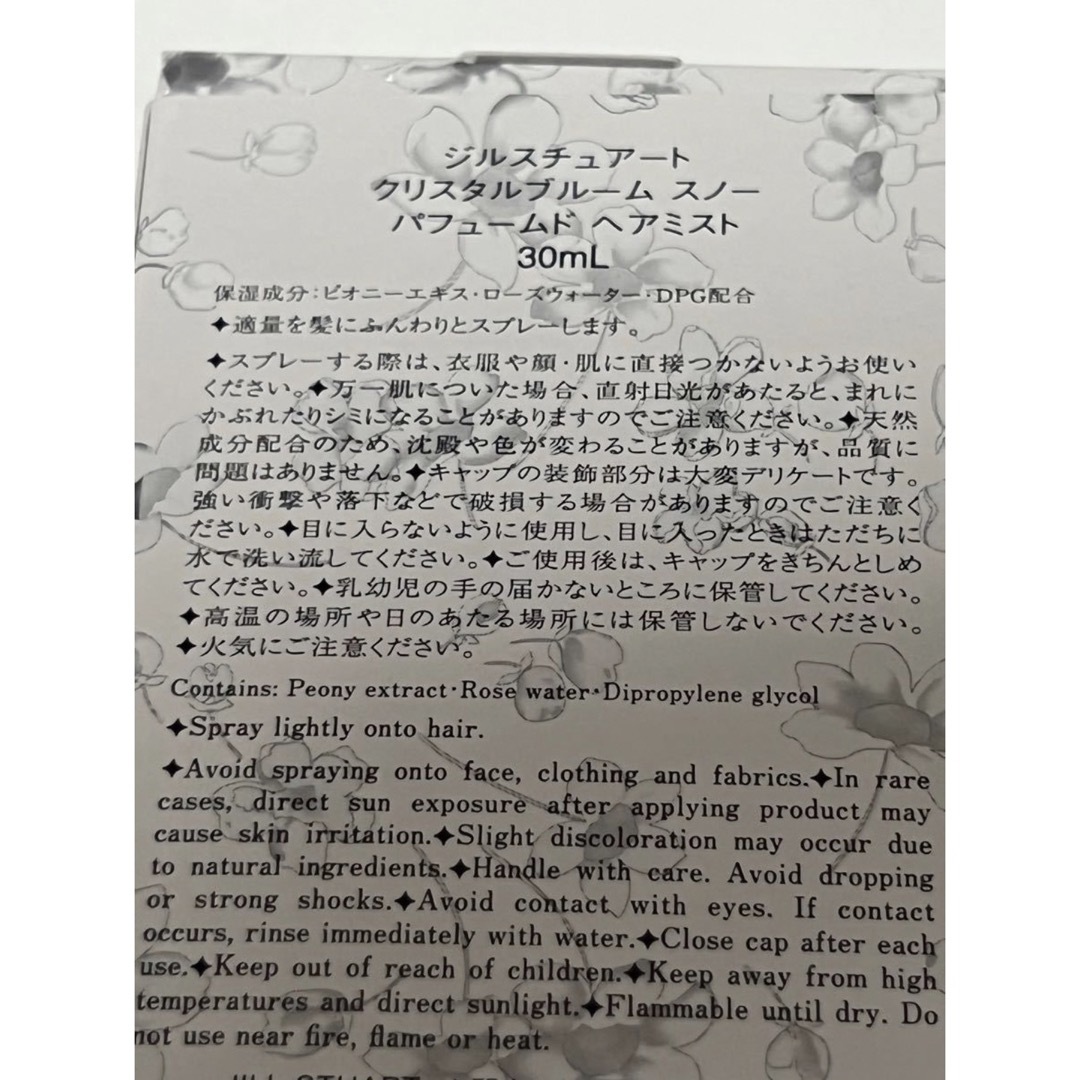 ジルスチュアート
クリスタルブルーム スノー
パフュームド ヘアミスト
30mL
保湿成分：ピオニーエキス・ローズウォーター・DPG配合
✦適量を髪にふんわりとスプレーします。
✦スプレーする際は、衣服や顔・肌に直接つかないようお使い
ください。✦万一肌についた場合、直射日光があたると、まれに
かぶれたりシミになることがありますのでご注意ください。✦天然
成分配合のため、沈殿や色が変わることがありますが、品質に
問題はありません。✦キャップの装飾部分は大変デリケートです。
強い衝撃や落下などで破損する場合がありますのでご注意く
ださい。✦目に入らないように使用し、目に入ったときはただちに
水で洗い流してください。✦ご使用後は、キャップをきちんとしめ
てください。✦乳幼児の手の届かないところに保管してください。
✦高温の場所や日のあたる場所には保管しないでください。
✦火気にご注意ください。
Contains: Peony extract・Rose water・Dipropylene glycol
✦Spray lightly onto hair.
✦Avoid spraying onto face, clothing and fabrics.✦In rare
cases, direct sun exposure after applying product may
cause skin irritation.✦Slight discoloration may occur due
to natural ingredients.✦Handle with care. Avoid dropping
or strong shocks.✦Avoid contact with eyes. If contact
occurs, rinse immediately with water.✦Close cap after each
use.✦Keep out of reach of children.✦Keep away from high
temperatures and direct sunlight.✦Flammable until dry. Do
not use near fire, flame or heat.
JILL STUART